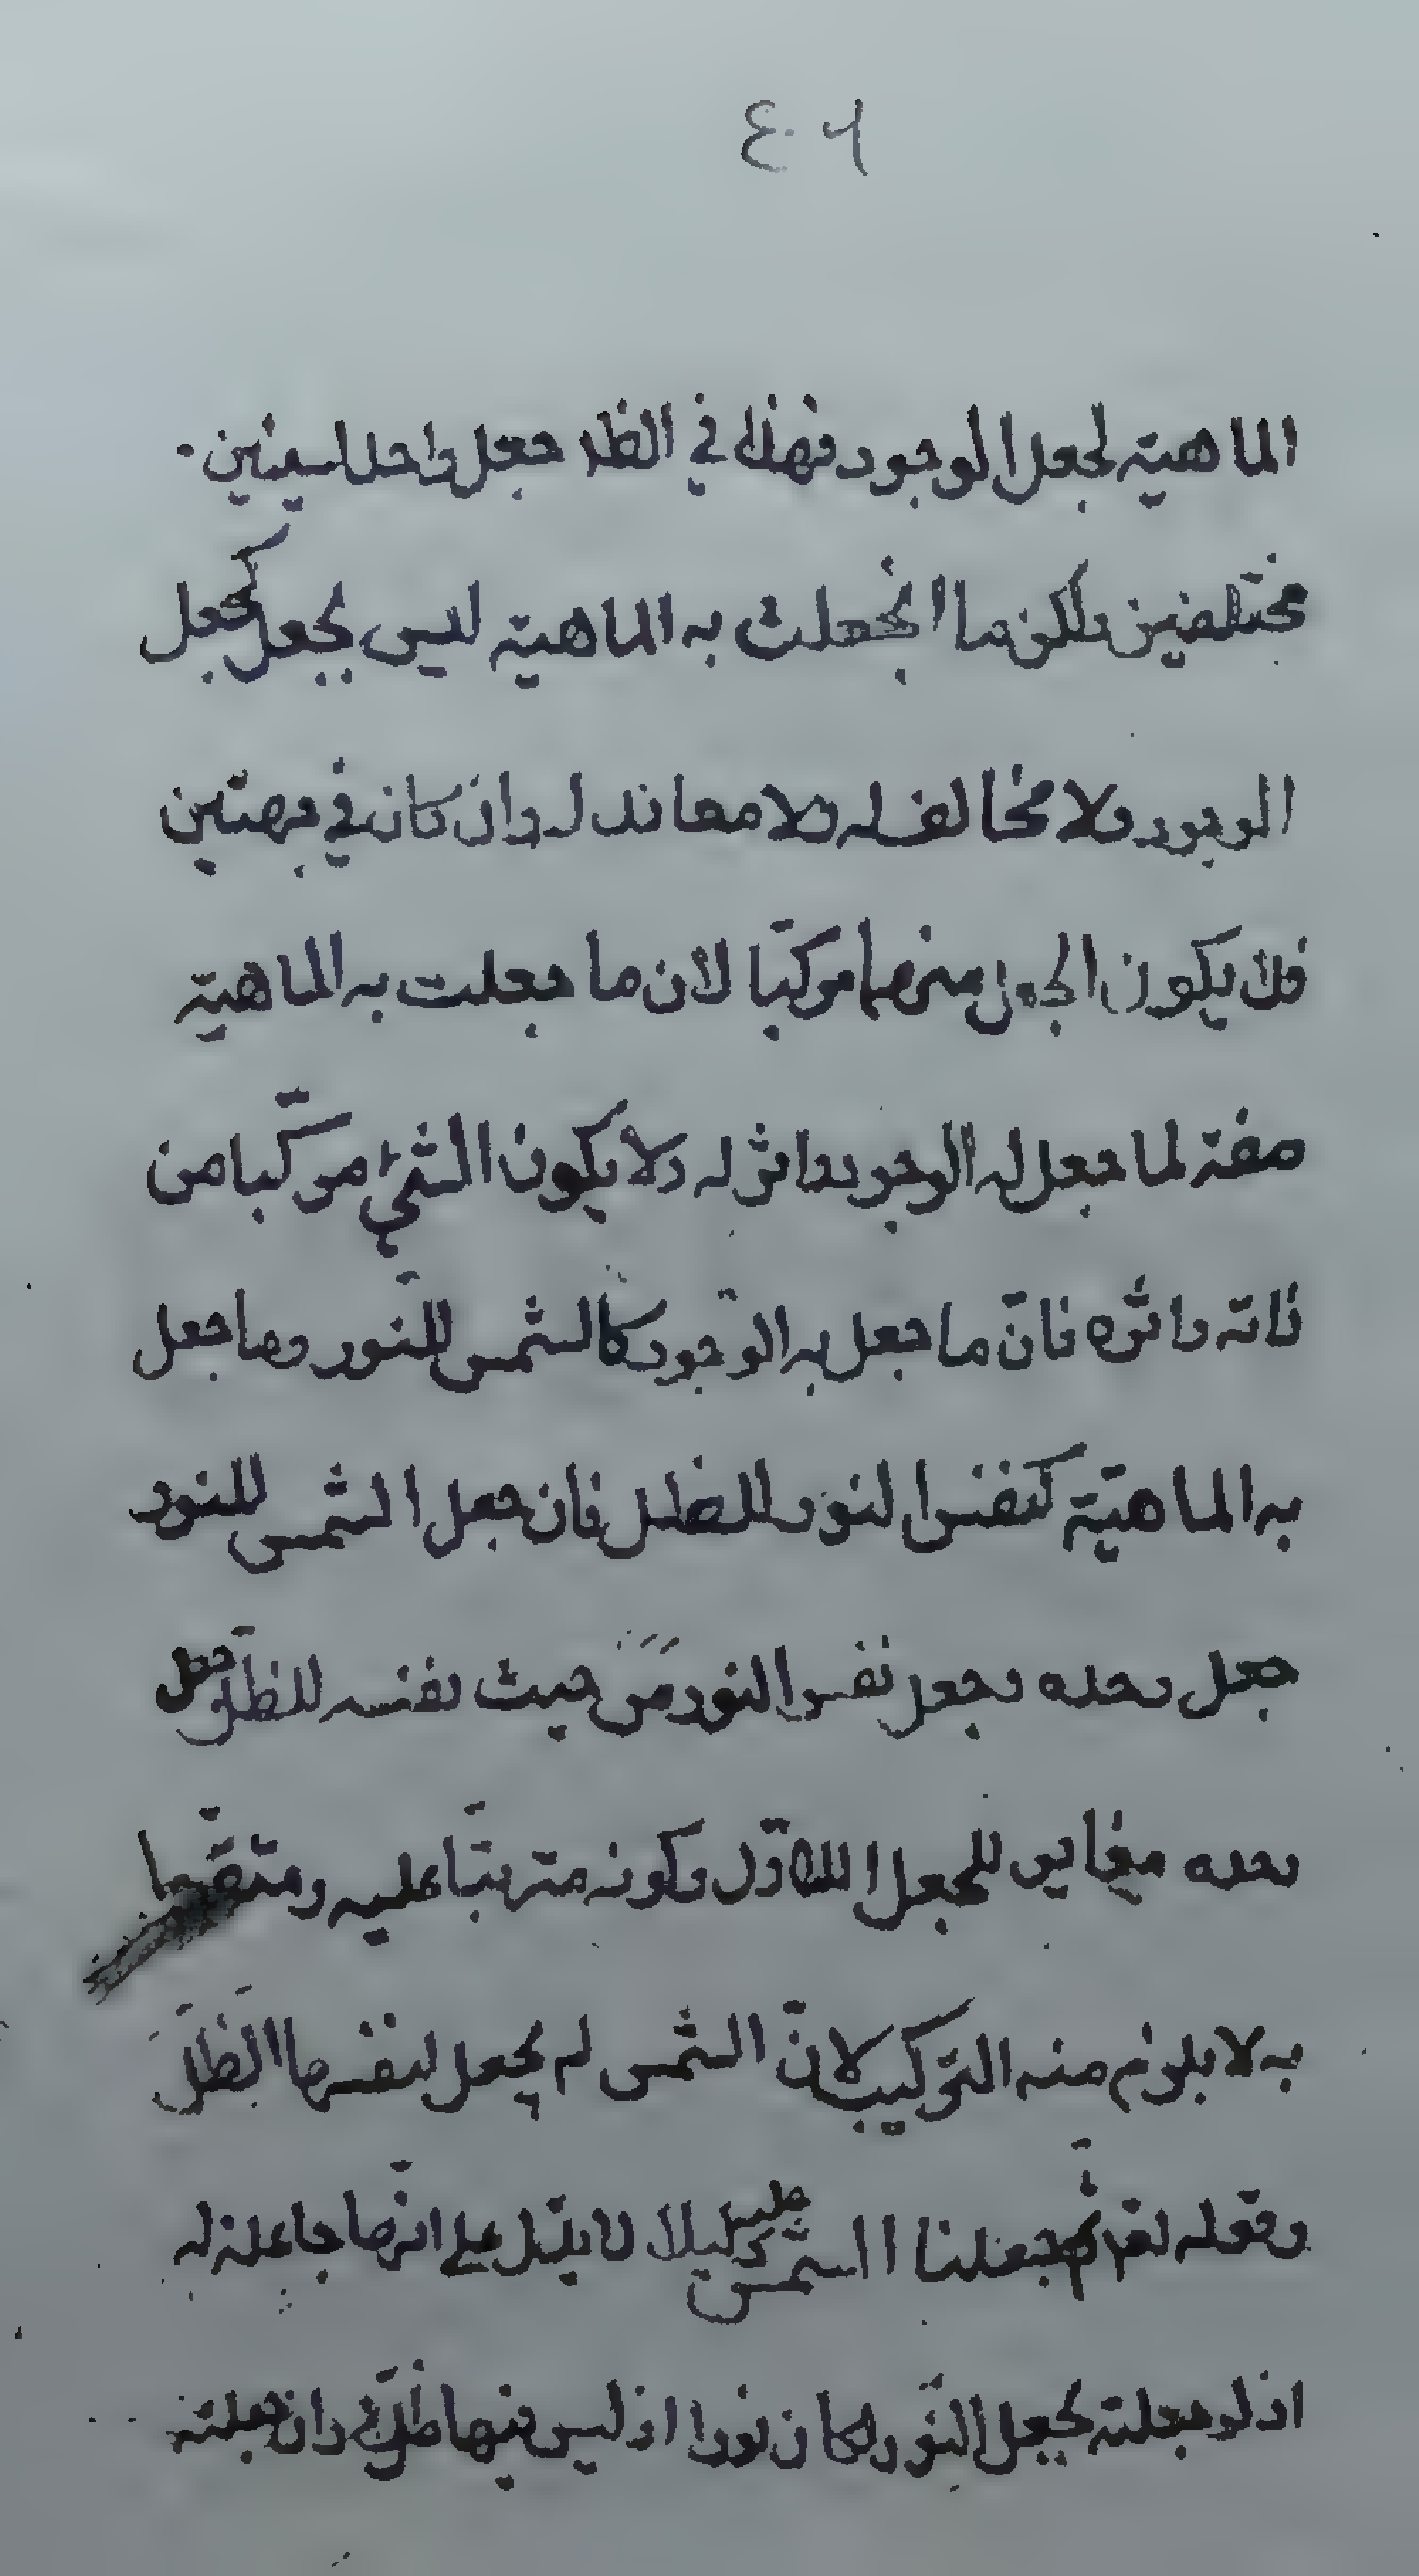 ٤٠٦
الماهية لجعل الوجود فهذا في الظا جعل واحد لسيئين
مختلفين ولكن ما انجعلت به الماهية ليس بجعل كجعل
الوجود ولا مخالف له ولا معاند له وان كان في جهتين
فلا يكون الجعل منهما مركبّا لان ما جعلت به الماهية
صفة لما جعل له الوجود واثر له ولا يكون الشئ مركّبا من
ذاته واثره فانّ ما جعل به الوجود كالشمس للنّور وما جعل
به الماهيّة كنفس النور للظل فان جعل الشمس للنور
جعل وحده وجعل نفس النور من حيث نفسه للظلّ جعل
وحده مغاير للجعل الاوّل وكونه مترتبّا عليه ومتقوّما
به لا يلزم منه التركيب لانّ الشمس لم يجعل لنفسها الظلّ
وقوله تعم ثم جعلنا الشمس عليه دليلا لا يدل على انّها جاعلة له
اذ لو جعلته كجعل النّور لكان نورا اذ ليس فيها ظلّ وان جعلته